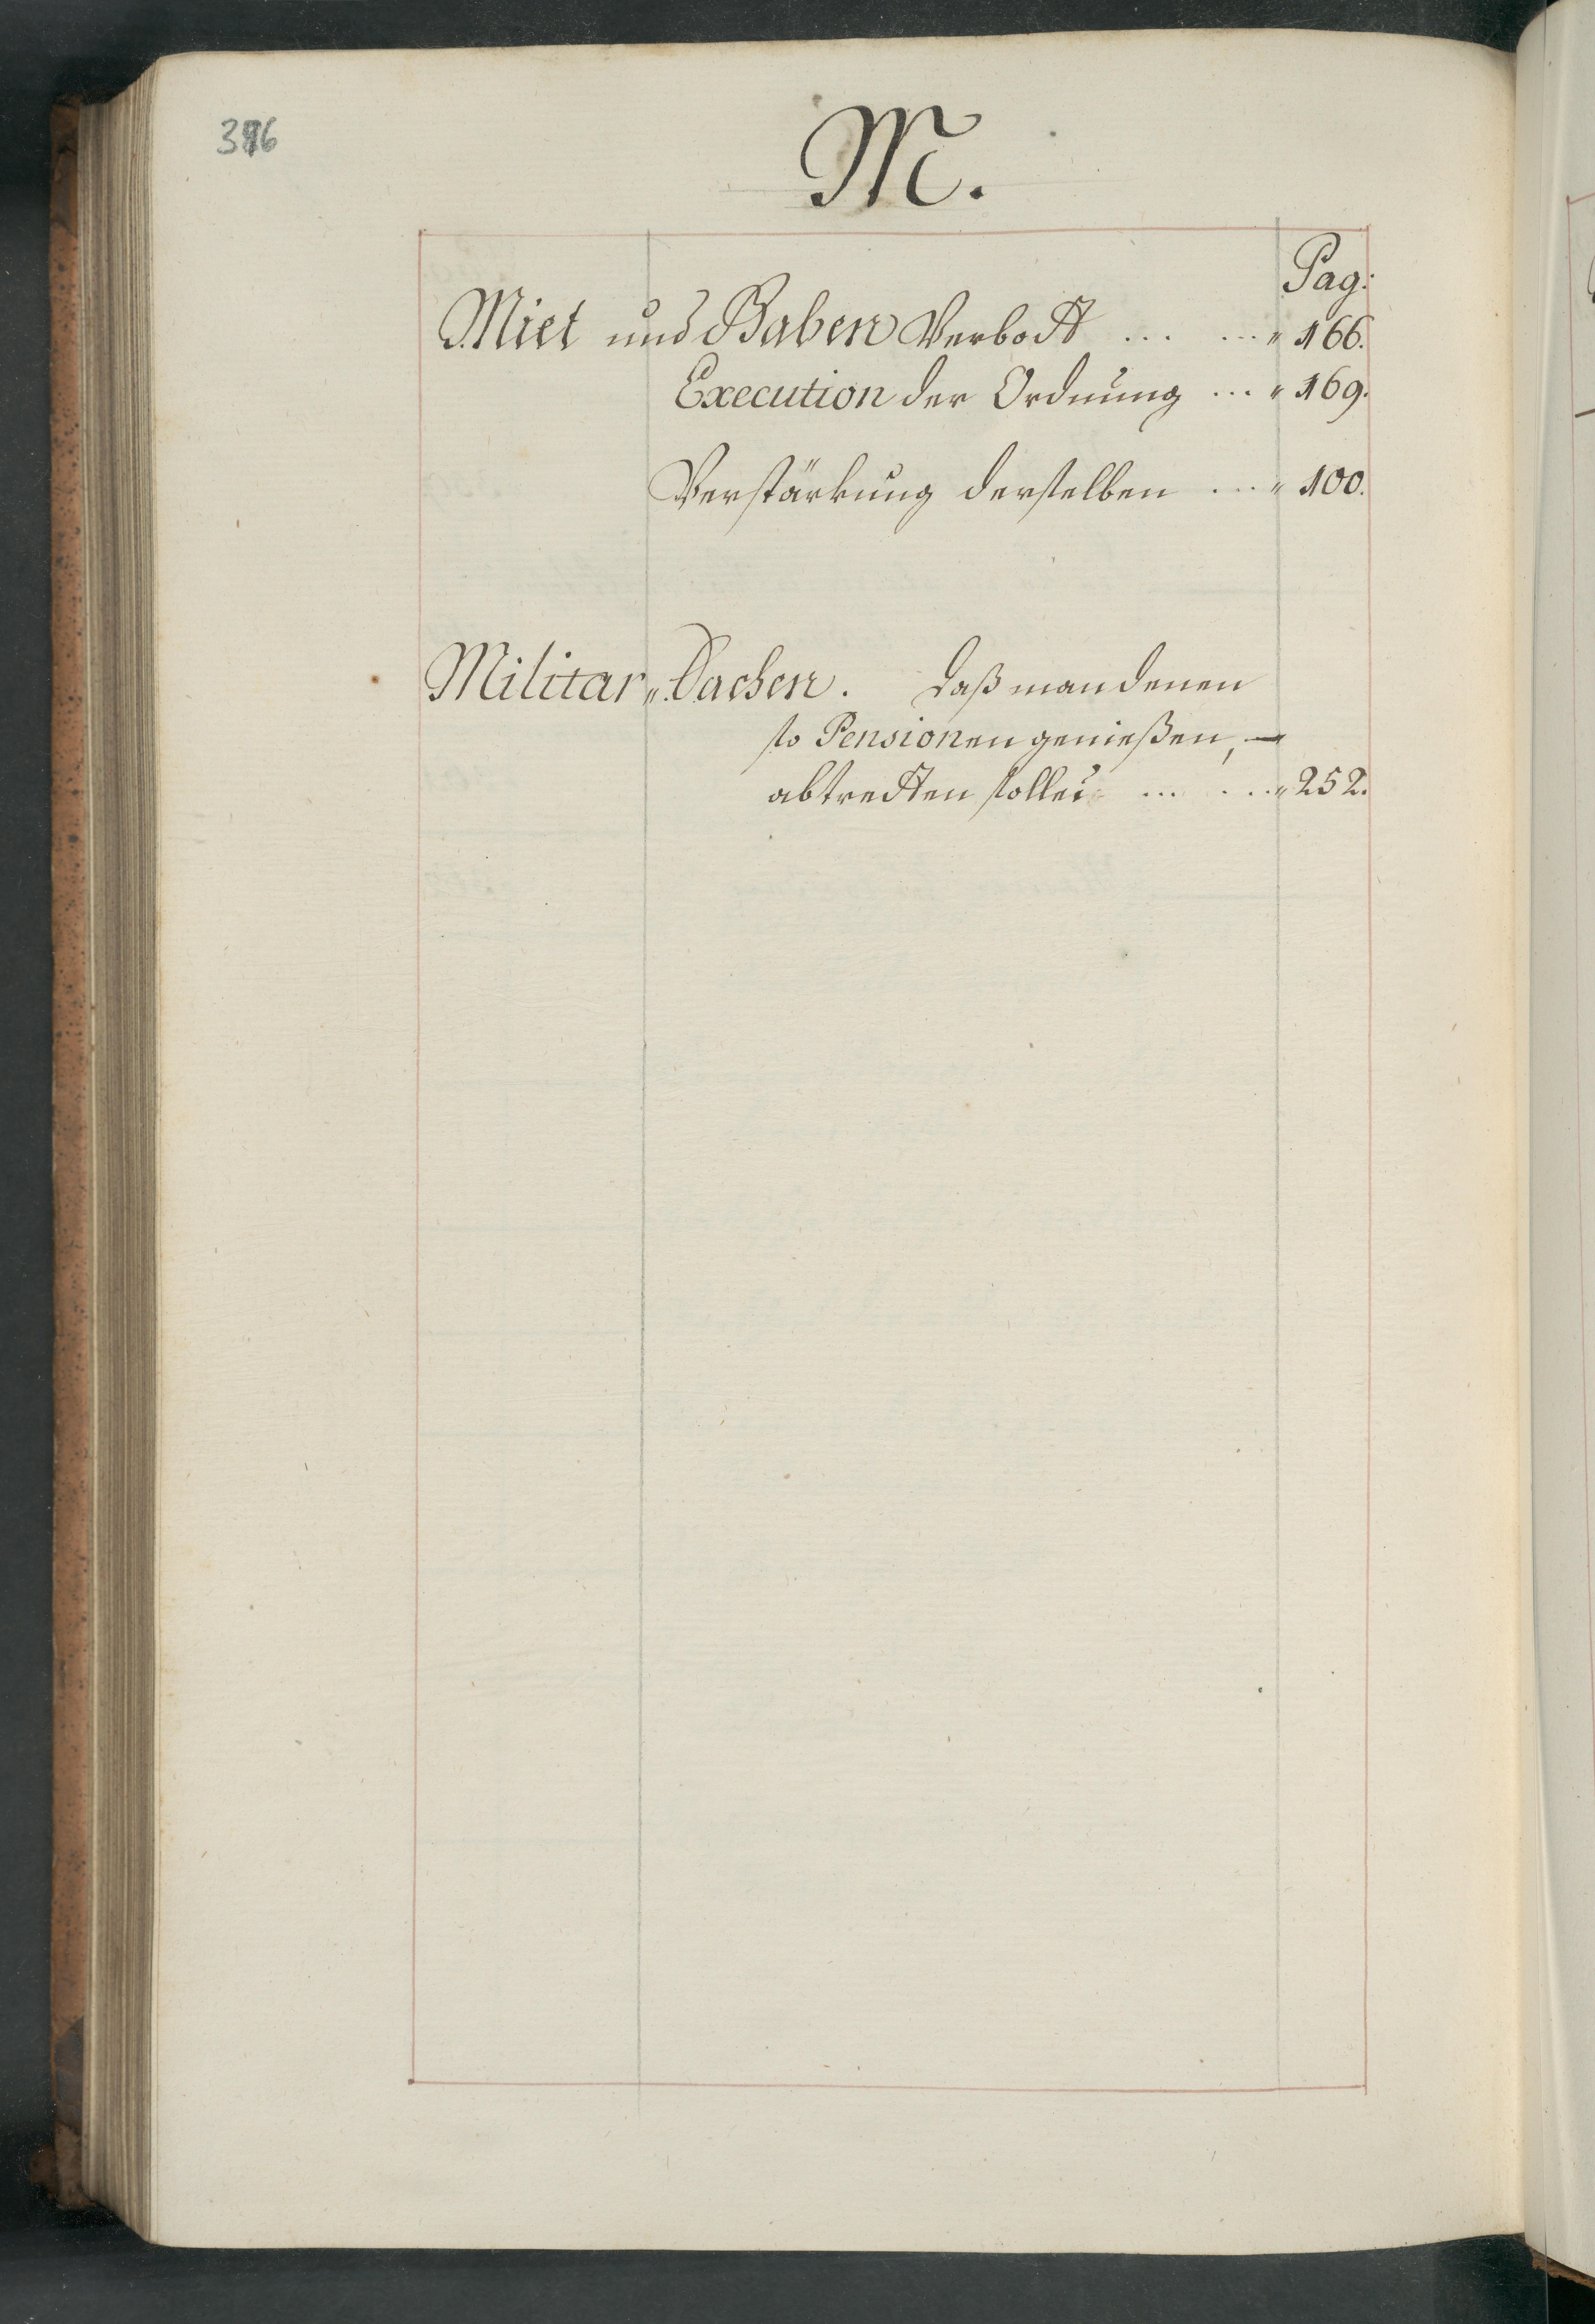 M.
Pag:
Miet und Gaben Verbott ... ... " 166.
Execution der Ordnung ... " 169.
Verstärkung derselben ... " 100.
Militar " Sachen. daß man denen
so Pensionen genießen, —
abtretten solle ... ... " 252.